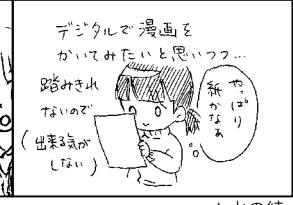 デジタルで漫画を
かいてみたいと思いつつ…
踏みきれ
ないので
(出来る気が
しない)
やっぱり
紙かなぁ